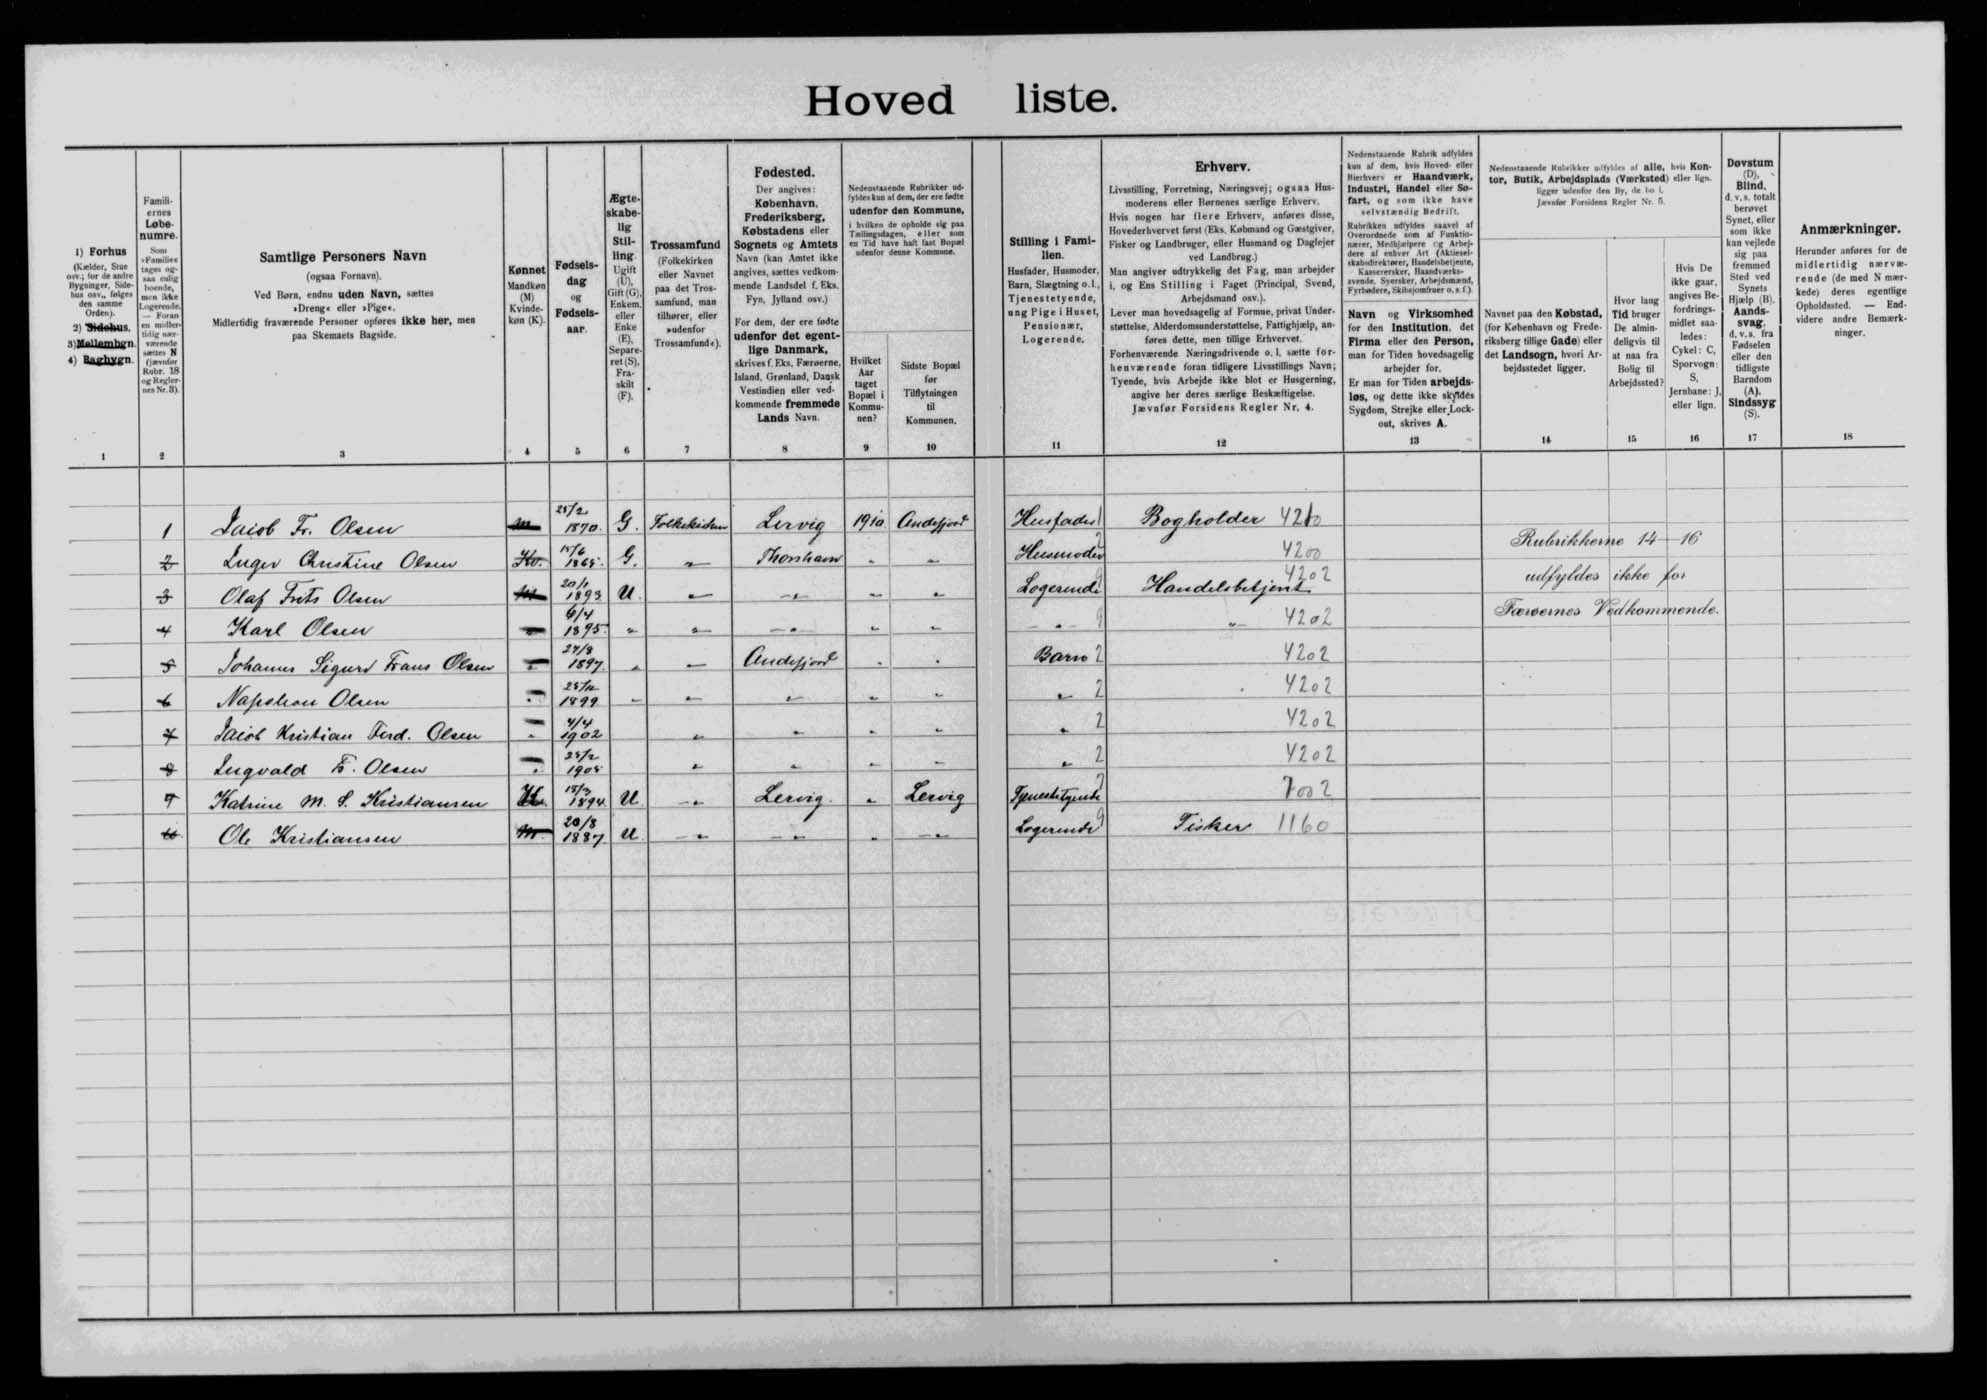 Hoved liste.
1) Forhus
(Kælder, Stue
osv.; for de andre
Bygninger, Side-
hus osv., følges
den samme
Orden).
2) Sidehus.
3) Mellembgn.
4) Bagbygn.
1
Famili-
ernes
Løbe-
numre.
Som
»Familie«
tages og-
saa enlig
boende,
men ikke
Logerende.
— Foran
en midler-
tidig nær-
værende
sættes N
(jævnfør
Rubr. 18
og Regler-
nes Nr. 3).
2
Samtlige Personers Navn
(ogsaa Fornavn).
Ved Børn, endnu uden Navn, sættes
»Dreng« eller »Pige«.
Midlertidig fraværende Personer opføres ikke her, men
paa Skemaets Bagside.
3
Kønnet
Mandkøn
(M)
Kvinde-
køn (K).
4
Fødsels-
dag
og
Fødsels-
aar.
5
Ægte-
skabe-
lig
Stil-
ling.
Ugift
(U),
Gift (G),
Enkem.
eller
Enke
(E),
Separe-
ret (S),
Fra-
skilt
(F).
6
Trossamfund
(Folkekirken
eller Navnet
paa det Tros-
samfund, man
tilhører, eller
»udenfor
Trossamfund«).
7
Fødested.
Der angives:
København,
Frederiksberg,
Købstadens eller
Sognets og Amtets
Navn (kan Amtet ikke
angives, sættes vedkom-
mende Landsdel f. Eks.
Fyn, Jylland osv.)
For dem, der ere fødte
udenfor det egent-
lige Danmark,
skrives f. Eks. Færøerne,
Island, Grønland, Dansk
Vestindien eller ved-
kommende fremmede
Lands Navn.
8
Nedenstaaende Rubrikker ud-
fyldes kun af dem, der ere fødte
udenfor den Kommune,
i hvilken de opholde sig paa
Tællingsdagen, eller som
en Tid have haft fast Bopæl
udenfor denne Kommune.
Hvilket
Aar
taget
Bopæl i
Kommu-
nen?
9
Sidste Bopæl
før
Tilflytningen
til
Kommunen.
10
Stilling i Fami-
lien.
Husfader, Husmoder,
Barn, Slægtning o. l.,
Tjenestetyende,
ung Pige i Huset,
Pensionær,
Logerende.
11
Erhverv.
Livsstilling, Forretning, Næringsvej; ogsaa Hus-
moderens eller Børnenes særlige Erhverv.
Hvis nogen har flere Erhverv, anføres disse,
Hovederhvervet først (Eks. Købmand og Gæstgiver,
Fisker og Landbruger, eller Husmand og Daglejer
ved Landbrug.)
Man angiver udtrykkelig det Fag, man arbejder
i, og Ens Stilling i Faget (Principal, Svend,
Arbejdsmand osv.).
Lever man hovedsagelig af Formue, privat Under-
støttelse, Alderdomsunderstøttelse, Fattighjælp, an-
føres dette, men tillige Erhvervet.
Forhenværende Næringsdrivende o. l. sætte for-
henværende foran tidligere Livsstillings Navn;
Tyende, hvis Arbejde ikke blot er Husgerning,
angive her deres særlige Beskæftigelse.
Jævnfør Forsidens Regler Nr. 4.
12
Nedenstaaende Rubrik udfyldes
kun af dem, hvis Hoved- eller
Bierhverv er Haandværk,
Industri, Handel eller Sø-
fart, og som ikke have
selvstændig Bedrift.
Rubrikken udfyldes saavel af
Overordnede som af Funktio-
nærer, Medhjælpere og Arbej-
dere af enhver Art (Aktiesel-
skabsdirektører, Handelsbetjente,
Kassererske, Haandværks-
svende, Syersker, Arbejdsmænd,
Fyrbødere, Skibsjomfruer o. s. f.).
Navn og Virksomhed
for den Institution, det
Firma eller den Person,
man for Tiden hovedsagelig
arbejder for.
Er man for Tiden arbejds-
løs, og dette ikke skyldes
Sygdom, Strejke eller Lock-
out, skrives A.
13
Nedenstaaende Rubrikker udfyldes af alle, hvis Kon-
tor, Butik, Arbejdsplads (Værksted) eller lign.
ligger udenfor den By, de bo i.
Jævnfør Forsidens Regler Nr. 5.
Navnet paa den Købstad,
(for København og Frede-
riksberg tillige Gade) eller
det Landsogn, hvori Ar-
bejdsstedet ligger.
14
Hvor lang
Tid bruger
De almin-
deligvis til
at naa fra
Bolig til
Arbejdssted?
15
Hvis De
ikke gaar,
angives Be-
fordrings-
midlet saa-
ledes:
Cykel: C,
Sporvogn:
S,
Jernbane: J,
eller lign.
16
Døvstum
(D).
Blind,
d. v. s. totalt
berøvet
Synet, eller
som ikke
kan vejlede
sig paa
fremmed
Sted ved
Synets
Hjælp (B).
Aands-
svag,
d. v. s. fra
Fødselen
eller den
tidligste
Barndom
(A).
Sindssyg
(S).
17
Anmærkninger.
Herunder anføres for de
midlertidig nærvæ-
rende (de med N mær-
kede) deres egentlige
Opholdssted. — End-
videre andre Bemærk-
ninger.
18
1 Jacob Fr. Olsen M 25/2 1870. G. Folkekirken Lervig 1910 Andefjord Husfader 1 Bogholder 4210
2 Inger Christine Olsen Kv. 15/6 1865. G. " Thorshavn " " Husmoder 2 4200
3 Olaf Frits Olsen M 20/1 1893 U. " " " " Logerende 9 Handelsbetjent 4202
4 Karl Olsen " 6/4 1895. " " " " " " 9 " 4202
5 Johannes Sigurd Frans Olsen " 27/8 1897. " " Andefjord " " Barn 2 4202
6 Napoleon Olsen " 1899 " " " " " " 2 4202
7 Jacob Kristian Ferd. Olsen " 4/4 1902 " " " " " 2 4202
8 Ingvald Fr. Olsen " 25/2 1905 " " " " " 2 4202
9 Katrine M. S. Kristiansen K. 1894. U. " Lervig. " Lervig Tjenestetyende 7 7002
10 Ole Kristiansen M. 20/8 1887. U. " " " " Logerende 9 Fisker 1160
Rubrikkerne 14—16
udfyldes ikke for
Færøernes Vedkommende.